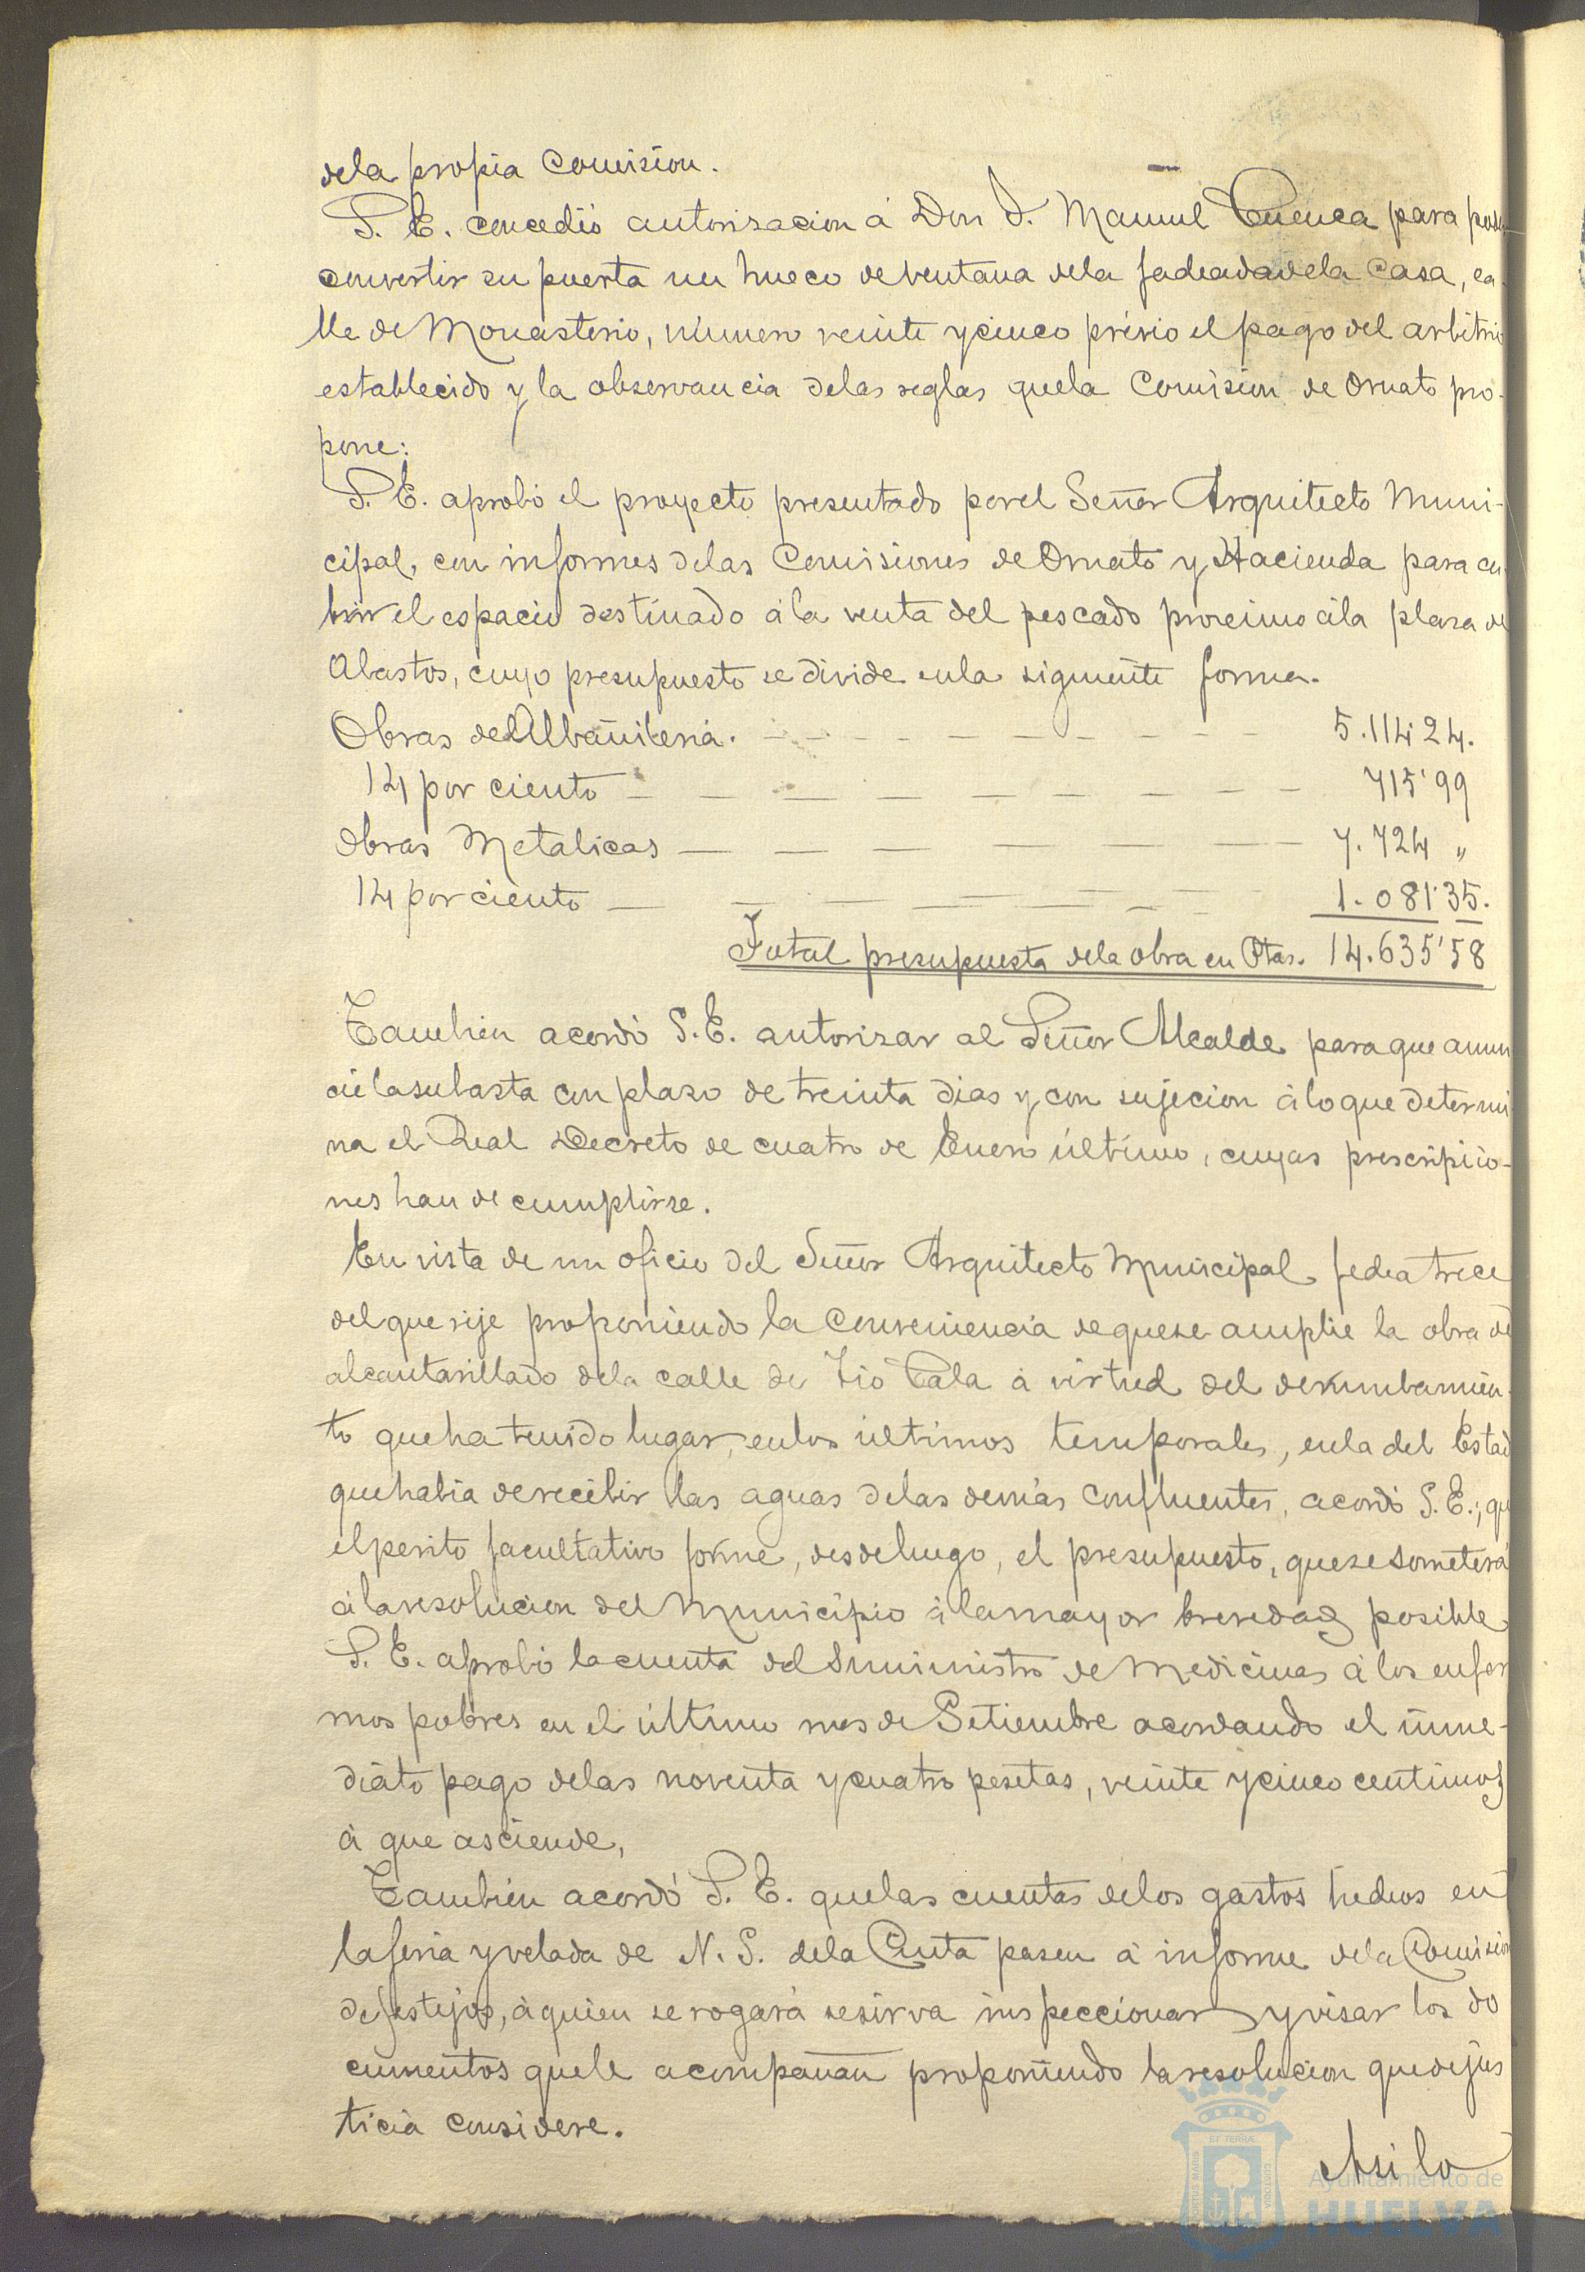 dela propia Comision.
S. E. concedió autorizacion á Don J. Manuel Cuenca para poder
convertir en puerta un hueco de ventana dela fachada dela Casa, ca-
lle de Monasterio, número veinte y cinco prévio el pago del arbitrio
establecido y la observancia delas reglas quela Comision de Ornato pro-
pone:
S. E. aprobó el proyecto presentado porel Señor Arquitecto Muni-
cipal, con informes delas Comisiones de Ornato y Hacienda para cu-
brir el espacio destinado á la venta del pescado procsimo ála plaza de
Abastos, cuyo presupuesto se divide enla siguiente forma.
Obras de Albañileria. 5.114'24.
14 por ciento 715'99
Obras Metalicas 7.724 "
14 por ciento 1.081'35.
Total presupuesto dela obra en Ptas. 14.635'58
Tambien acordó S. E. autorizar al Señor Alcalde para que anun
cie la subasta con plazo de treinta dias y con sujecion á lo que determi
na el Real Decreto de cuatro de Enero último, cuyas prescripcio-
nes han de cumplirse.
En vista de un oficio del Señor Arquitecto Municipal fecha trece
del que rije proponiendo la Conveniencia de quese amplie la obra de
alcantarillado dela calle de Tio Pala á virtud del derrumbamien-
to que ha tenido lugar, enlos últimos temporales, enla del Estad
que habia de recibir las aguas delas demás confluentes, acordó S. E.; que
el perito facultativo forme, desde luego, el presupuesto, quese someterá
á la resolucion del Municipio á la mayor brevedad posible
S. E. aprobó la cuenta del Suministro de Medicinas á los enfer
mos pobres en el último mes de Setiembre acordando el inme-
diato pago delas noventa y cuatro pesetas, veinte y cinco centimos
á que asciende,
Tambien acordó S. E. quelas cuentas delos gastos hechos en
la feria y velada de N. S. dela Cinta pasen á informe dela Comision
de festejos, á quien se rogará se sirva inspeccionar y visar los do
cumentos quele acompañan proponiendo la resolucion que de jus
ticia considere.
Asilo
Ayuntamiento de
HUELVA